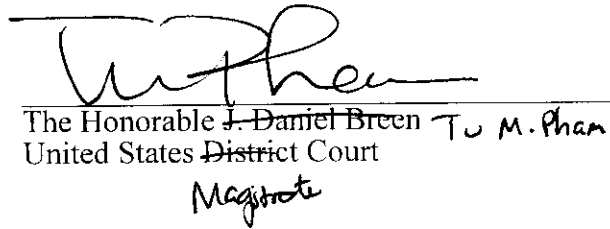 Tu Pham
The Honorable J. Daniel Breen Tu M. Pham
United States District Court
Magistrate